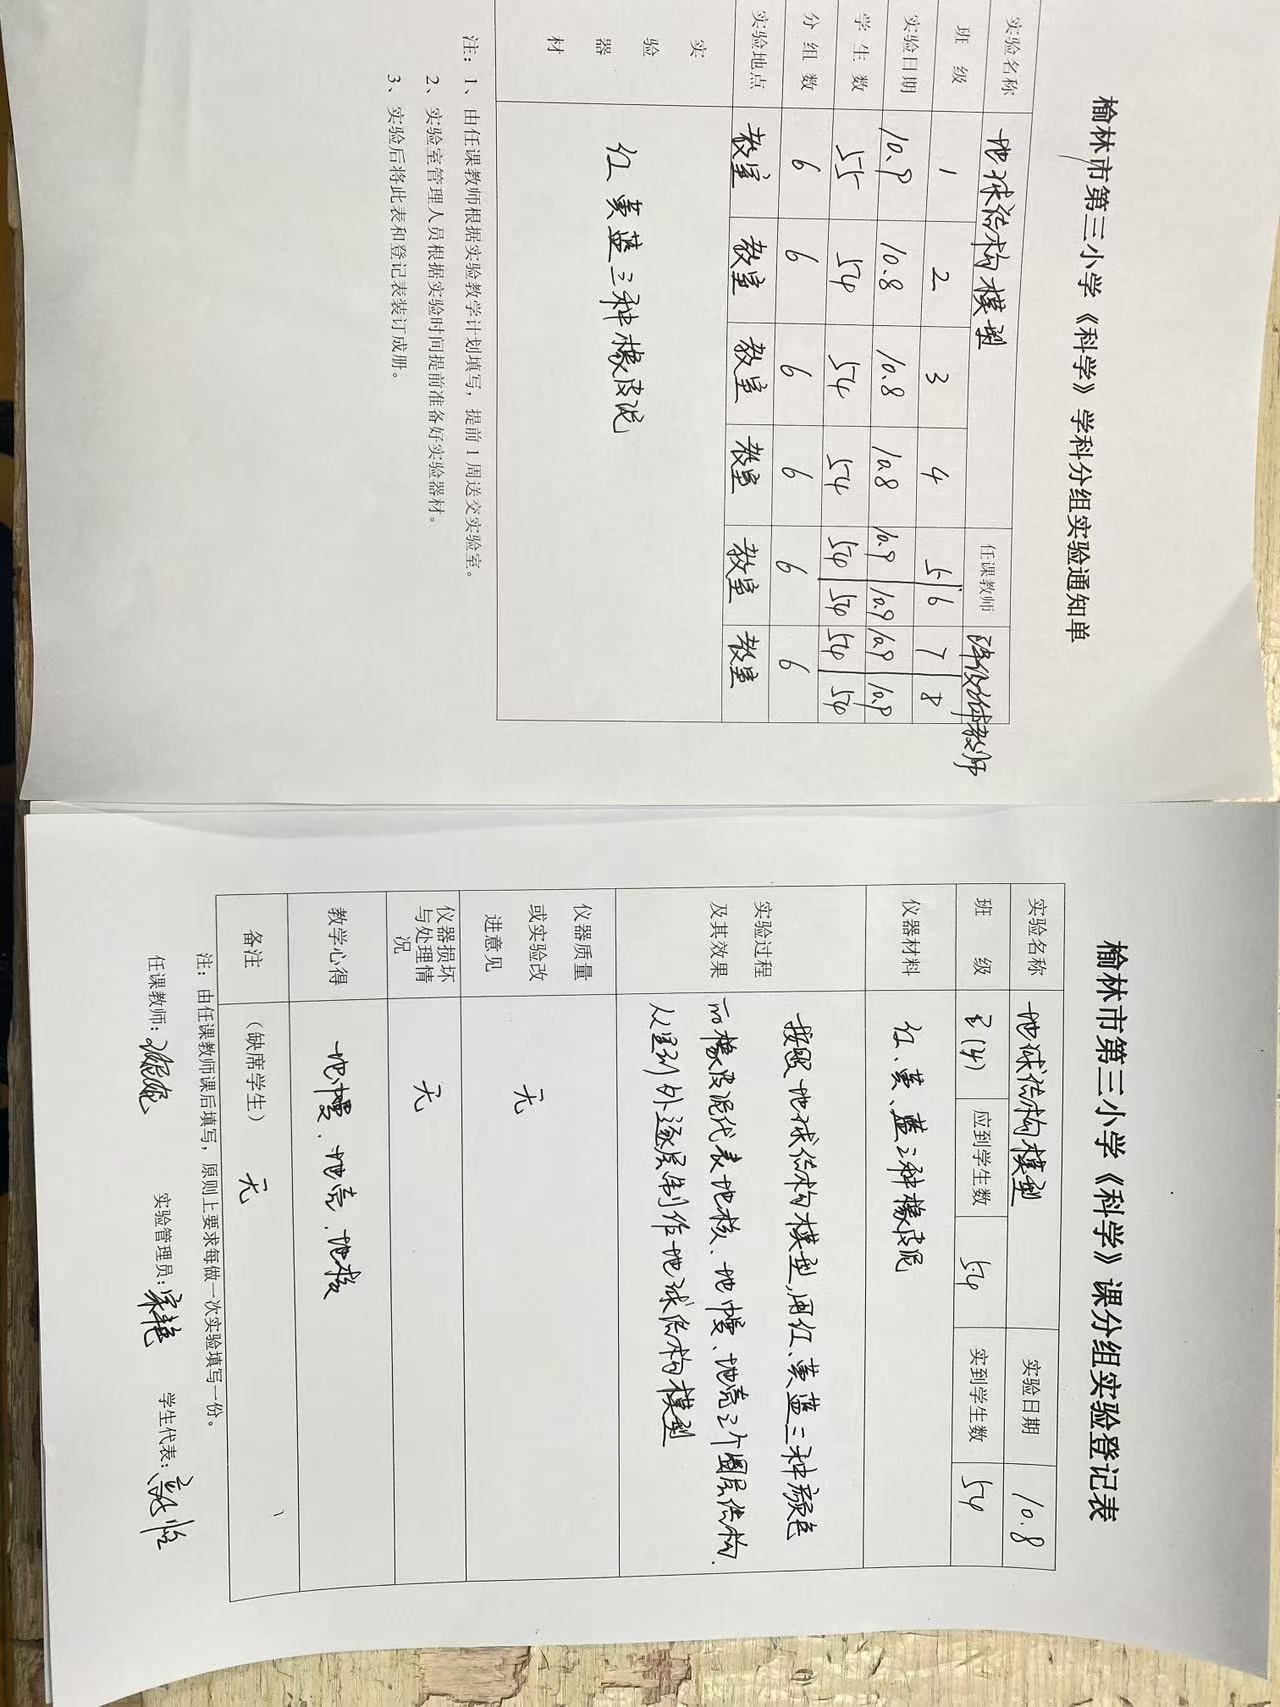 榆林市第三小学《科学》学科分组实验通知单
实验名称 地球结构模型 任课教师 教师
班 级 1 2 3 4 5 6 7 8
实验日期 10.9 10.8 10.8 10.8 10.9 10.9 10.9 10.9
学 生 数 55 54 54 54 54 54 54 54
分 组 数 6 6 6 6 6 6
实验地点 教室 教室 教室 教室 教室 教室
实验器材 红黄蓝三种橡皮泥
注：1、由任课教师根据实验教学计划填写，提前1周送交实验室。
2、实验室管理人员根据实验时间提前准备好实验器材。
3、实验后将此表和登记表装订成册。
榆林市第三小学《科学》课分组实验登记表
实验名称 地球结构模型 实验日期 10.8
班 级 (4) 应到学生数 54 实到学生数 54
仪器材料 红、黄、蓝三种橡皮泥
实验过程及其效果 按照地球结构模型,用红、黄蓝三种颜色
的橡皮泥代表地核、地幔、地壳三个圈层结构.
从里到外逐层制作地球结构模型
仪器质量或实验改进意见 无
仪器损坏与处理情况 无
教学心得 地幔、地壳、地核
备注 （缺席学生） 无
注：由任课教师课后填写，原则上要求每做一次实验填写一份。
任课教师: 实验管理员: 宋艳 学生代表: